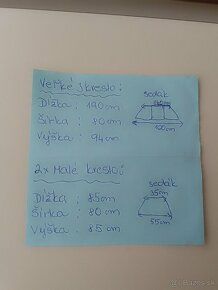 Veľké kreslo:
Dĺžka : 190cm
Šírka : 80cm
Výška : 94cm
sedák
100cm
2x Malé kreslo:
Dĺžka : 85cm
Šírka : 80cm
Výška : 85cm
sedák
35cm
55cm